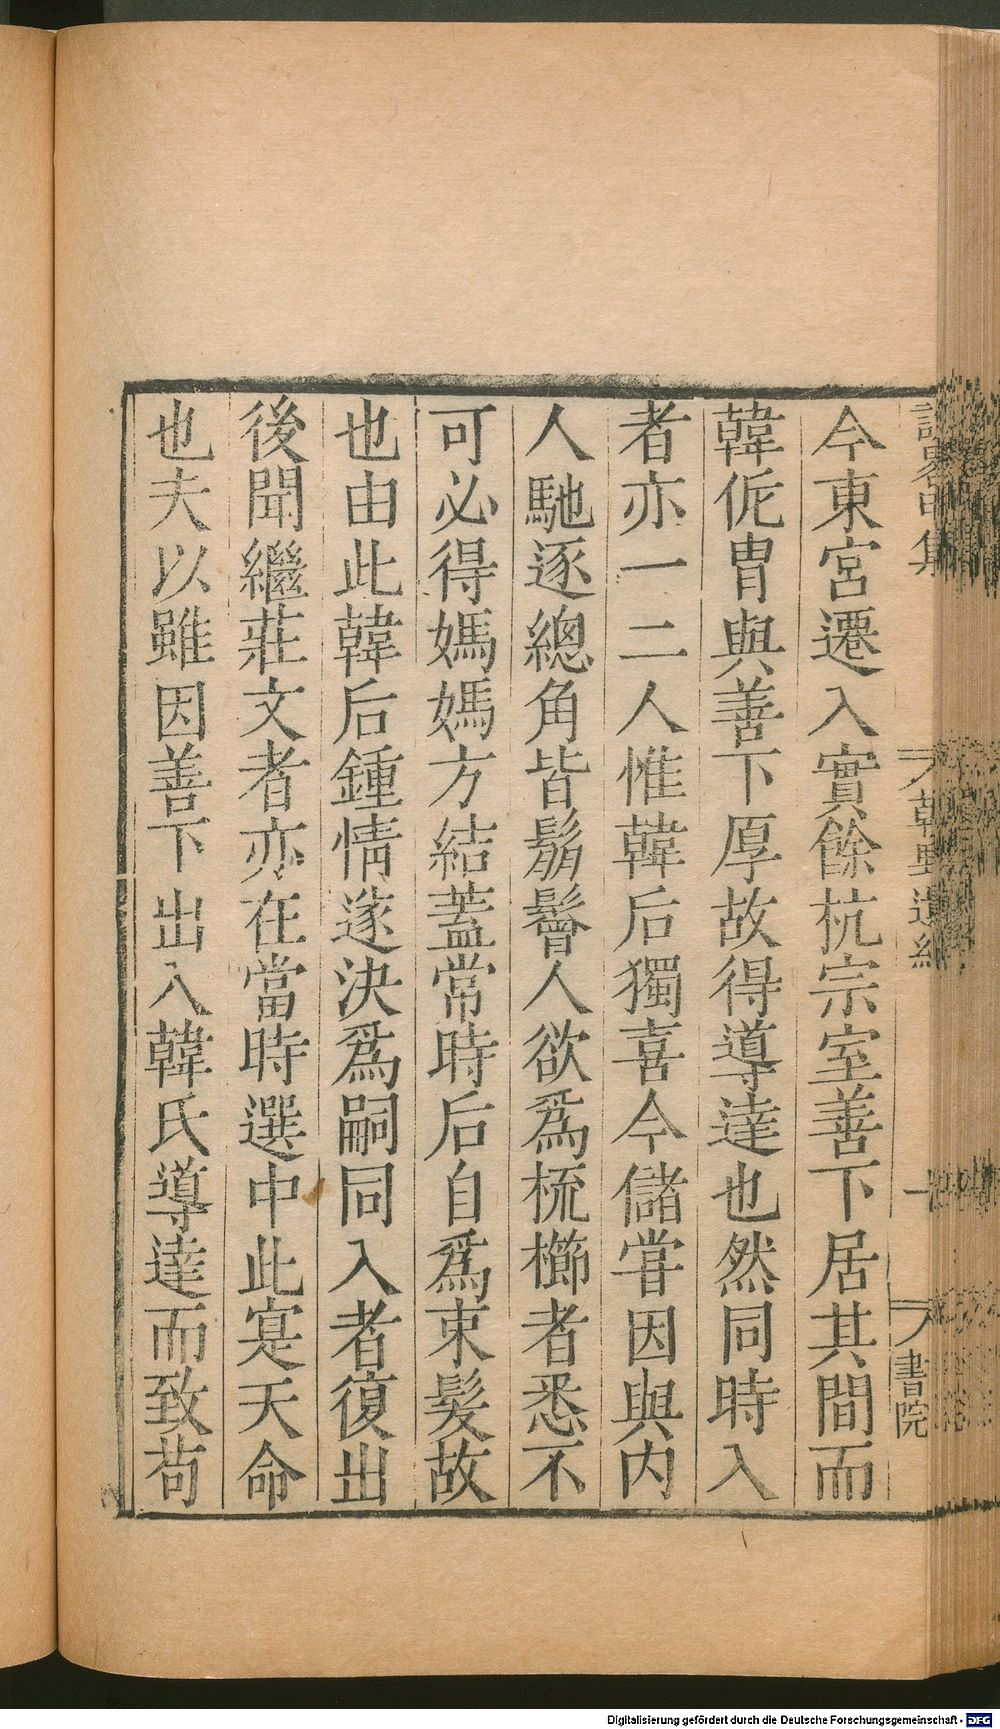 今東宮遷入實餘杭宗室善下居其間而
韓侂冑與善下厚故得導達也然同時入
者亦一二人惟韓后獨喜今儲嘗因與内
人馳逐總角皆鬅鬙人欲爲梳櫛者悉不
可必得媽媽方結蓋常時后自爲束髮故
也由此韓后鍾情遂決爲嗣同入者復出
後聞繼莊文者亦在當時選中此寔天命
也夫以雖因善下出入韓氏導達而致苟
書院
Digitalisierung gefördert durch die Deutsche Forschungsgemeinschaft - DFG